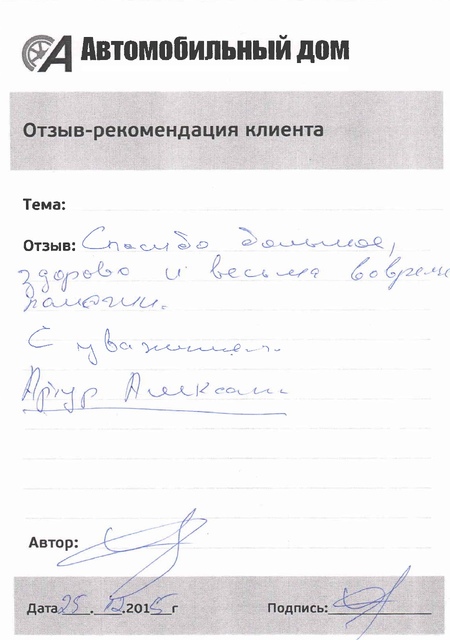 Автомобильный дом
Отзыв-рекомендация клиента
Тема:
Отзыв: Спасибо большое,
здорово и весьма воврем
помогли.
С уважением.
Артур
Автор:
Дата 25.12.2015г Подпись: